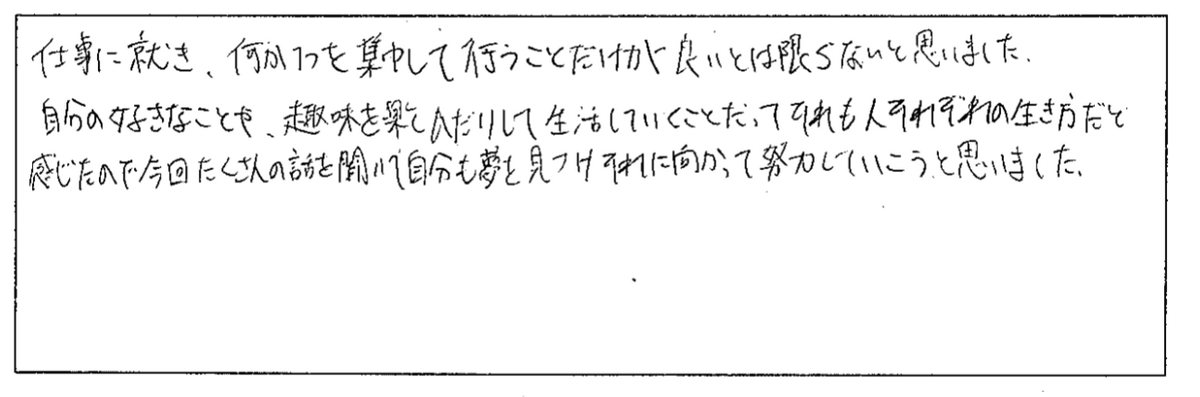 仕事に就き、何か1つを集中して行うことだけが良いとは限らないと思いました。
自分の好きなことや、趣味を楽しんだりして生活していくことだってそれも人それぞれの生き方だと
感じたので今回たくさんの話を聞いて自分も夢を見つけそれに向かって努力していこうと思いました。